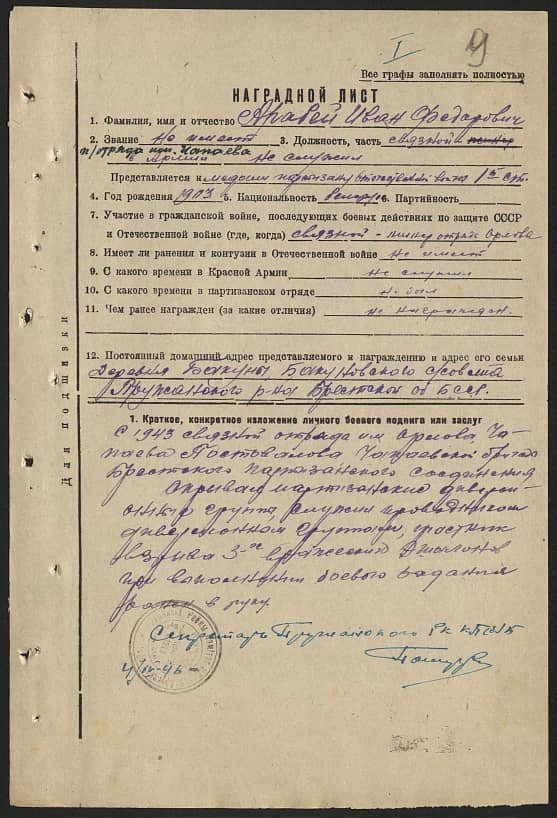 I 9
Все графы заполнять полностью
НАГРАДНОЙ ЛИСТ
1. Фамилия, имя и отчество Аравей Иван Федорович
2. Звание Не имеет 3. Должность, часть связной
п/отряда им. Чапаева
в Армии не служил
Представляется к медали партизану отечественной войны 1ой ст.
4. Год рождения 1903 5. Национальность белорус 6. Партийность
7. Участие в гражданской войне, последующих боевых действиях по защите СССР
и Отечественной войне (где, когда) связной - отряд
8. Имеет ли ранения и контузии в Отечественной войне не имеет
9. С какого времени в Красной Армии не служил
10. С какого времени в партизанском отряде н. был
11. Чем ранее награжден (за какие отличия) не награжден.
12. Постоянный домашний адрес представляемого к награждению и адрес его семьи
Деревня Бакуны Бакуновского с/совета
Пружанского р-на Брестской об БССР.
1. Краткое, конкретное изложение личного боевого подвига или заслуг
С 1943 связной отряда им Чапаева
Постовалова Чапаевской бригады
Брестского партизанского соединения
Скрывал партизанские диверсионные
группы, служил проводником
диверсионной группы, участник
взрыва 3-х вражеских эшелонов
при выполнении боевого задания
ранен в руку.
Секретарь Пружанского Рк КП(б)Б
Для подшивки